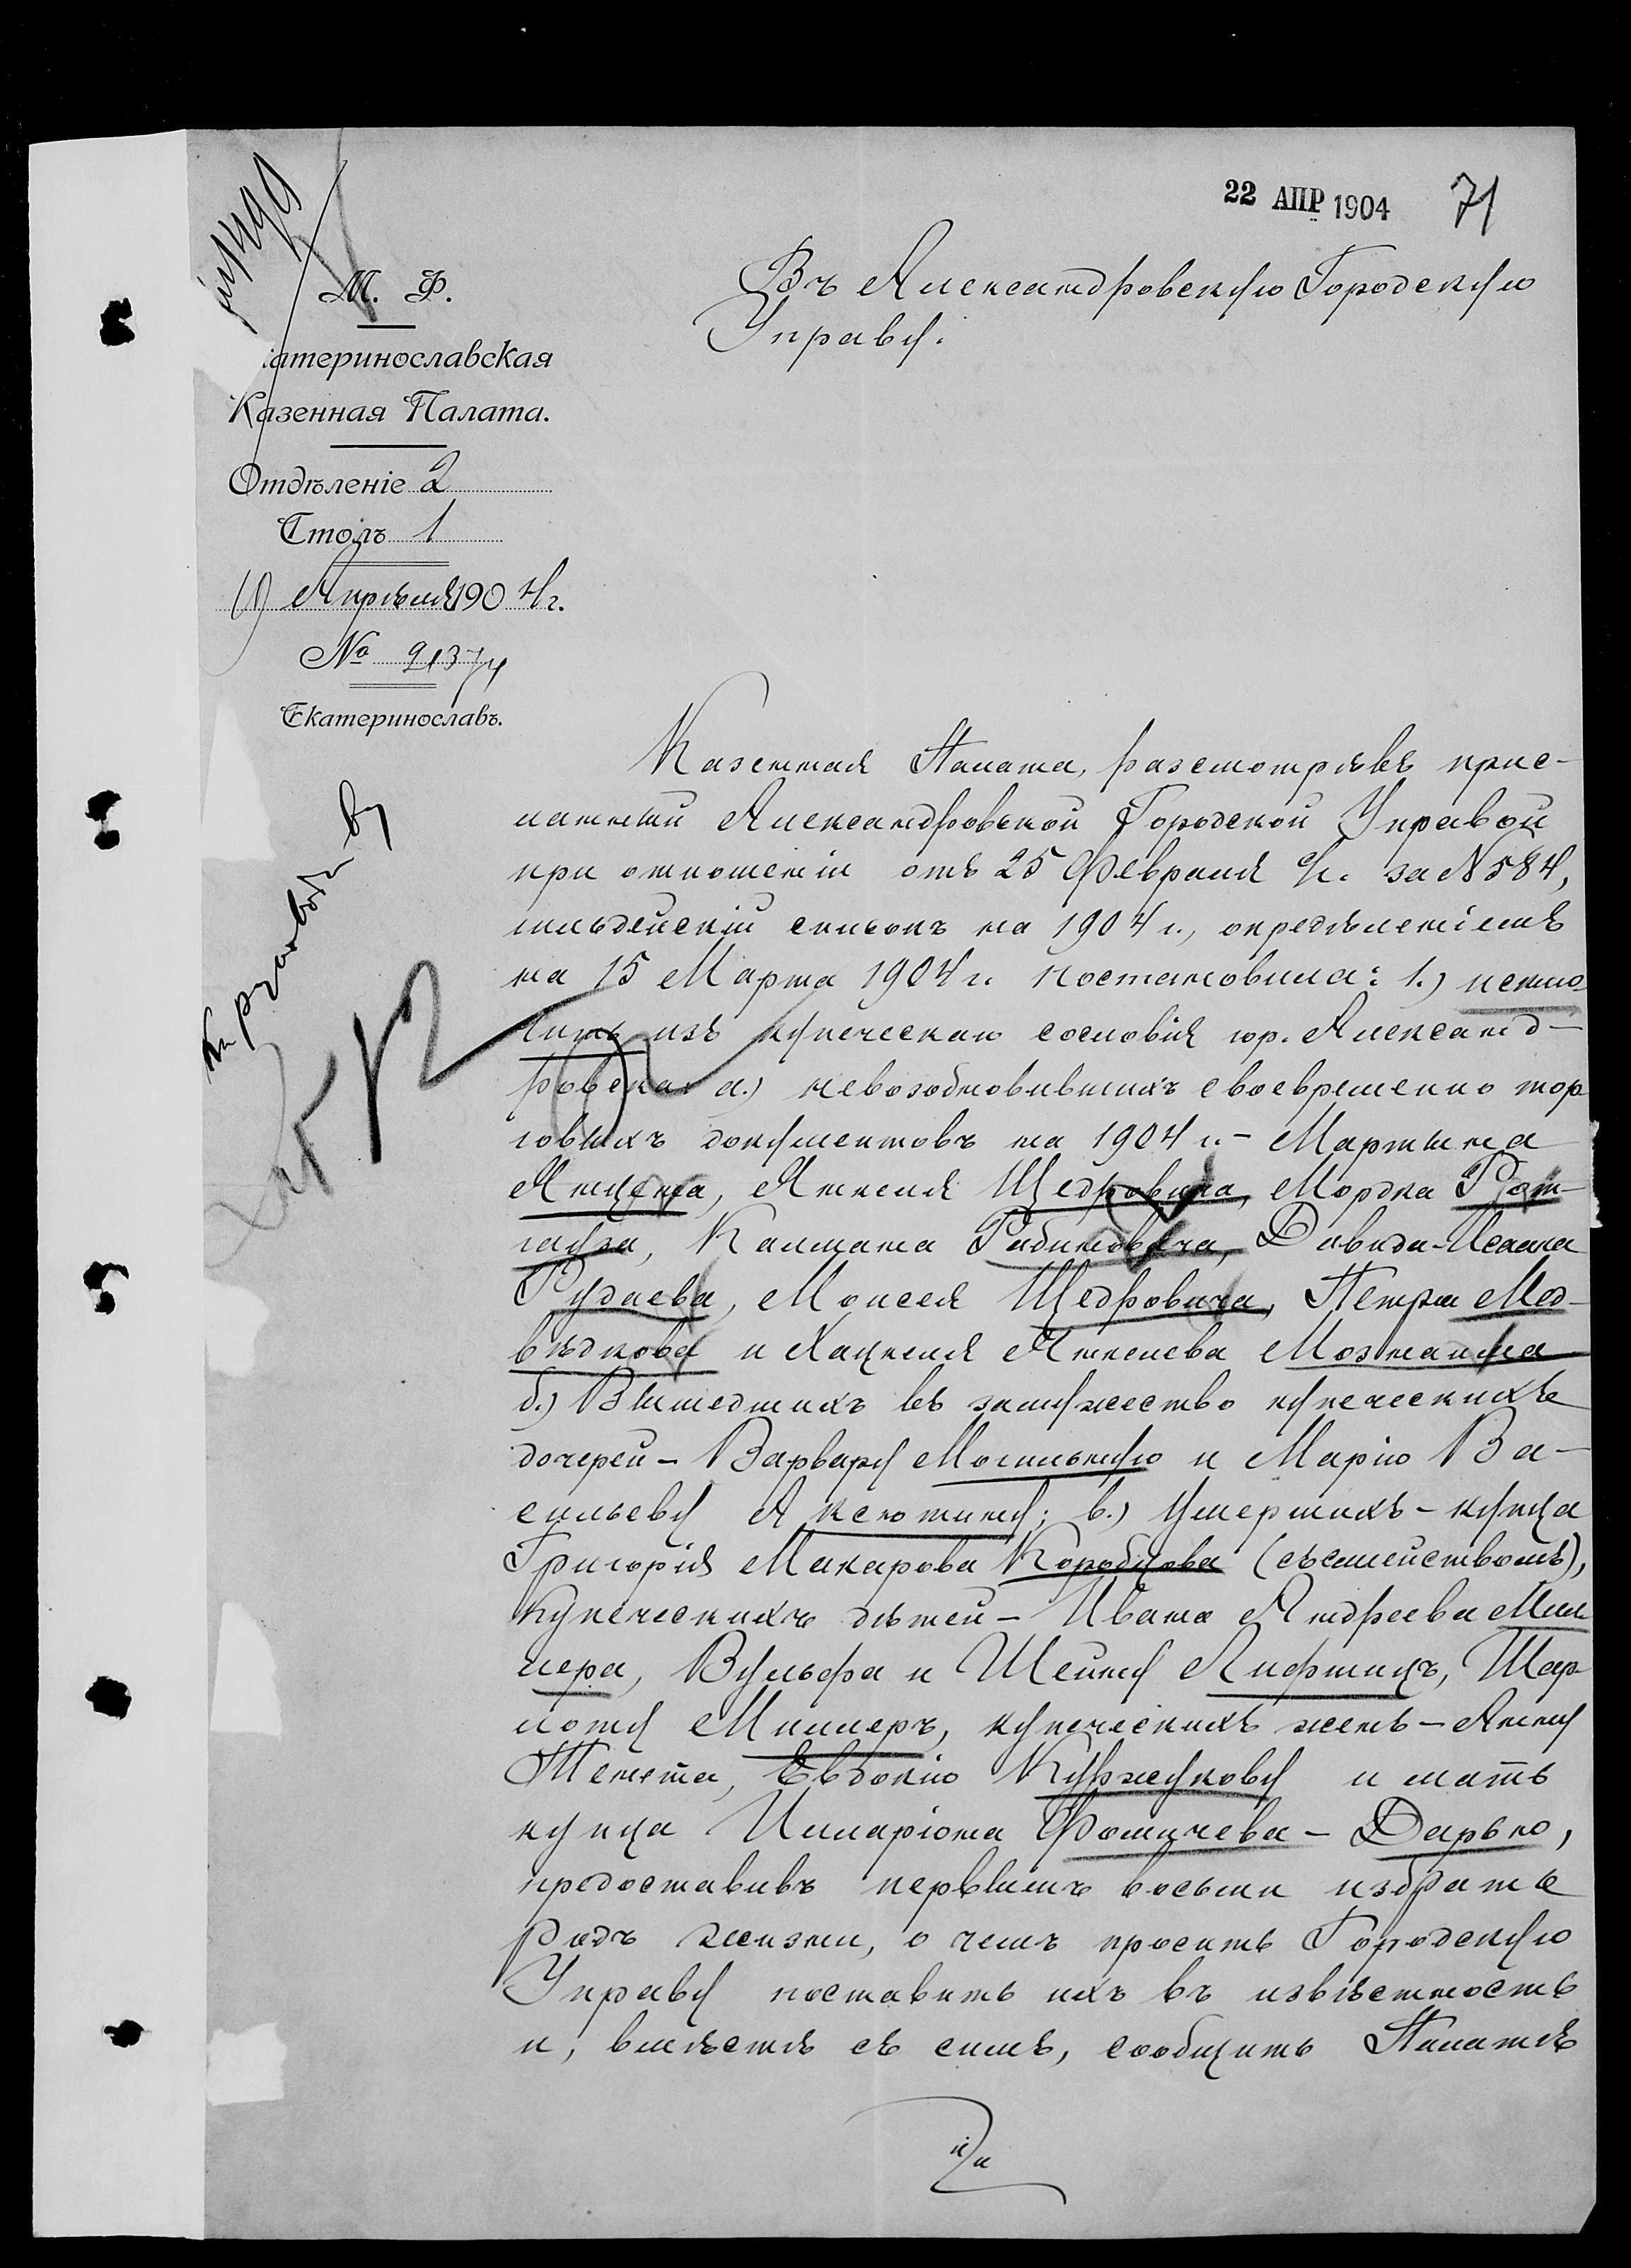 22 АПР 1904 71
Въ Александровскую Городскую
Управу.
М. Ф.
катеринославская
Казенная Палата.
Отдѣленіе 2
Столъ 1
Апрѣля 1904 г.
№ 21374
Екатеринославъ.
Казенная Палата, разсмотрѣвъ прис-
ланный Александровской Городской Управой
при отношеніи отъ 25 Февраля с/г. за № 584,
гильдейскій списокъ на 1904 г., опредѣленіемъ
на 15 Марта 1904 г. постановила: 1.) исклю-
чить изъ купеческаго сословія гор. Александ-
ровска: а.) невозобновившихъ своевременно тор
говыхъ документовъ на 1904 г. – Мартына
Янцена, Янкеля Щедровича, Мордка Рот-
гауза, Калмана Рабиновича, Давида-Исаака
Рудаева, Моисея Щедровича, Петра Мед-
вѣдкова и Хацкеля Янкелева Мознаима
б.) Вышедшихъ въ замужество купеческихъ
дочерей – Варвару Могильную и Марію Ва-
сильеву Аксютину; в.) умершихъ – купца
Григорія Макарова Коробцова (съ семействомъ),
купеческихъ дѣтей – Ивана Андреева Мил
лера, Вульфа и Шейну Лифшицъ, Шар-
лоту Миллеръ, купеческихъ женъ – Анну
Тенета, Евдокію Куржукову и мать
купца Илларіона Фомичева – Дарью,
предоставивъ первымъ восьми избрать
родъ жизни, о чемъ проситъ Городскую
Управу поставить ихъ въ извѣстность
и, вмѣстѣ съ симъ, сообщить Палатѣ